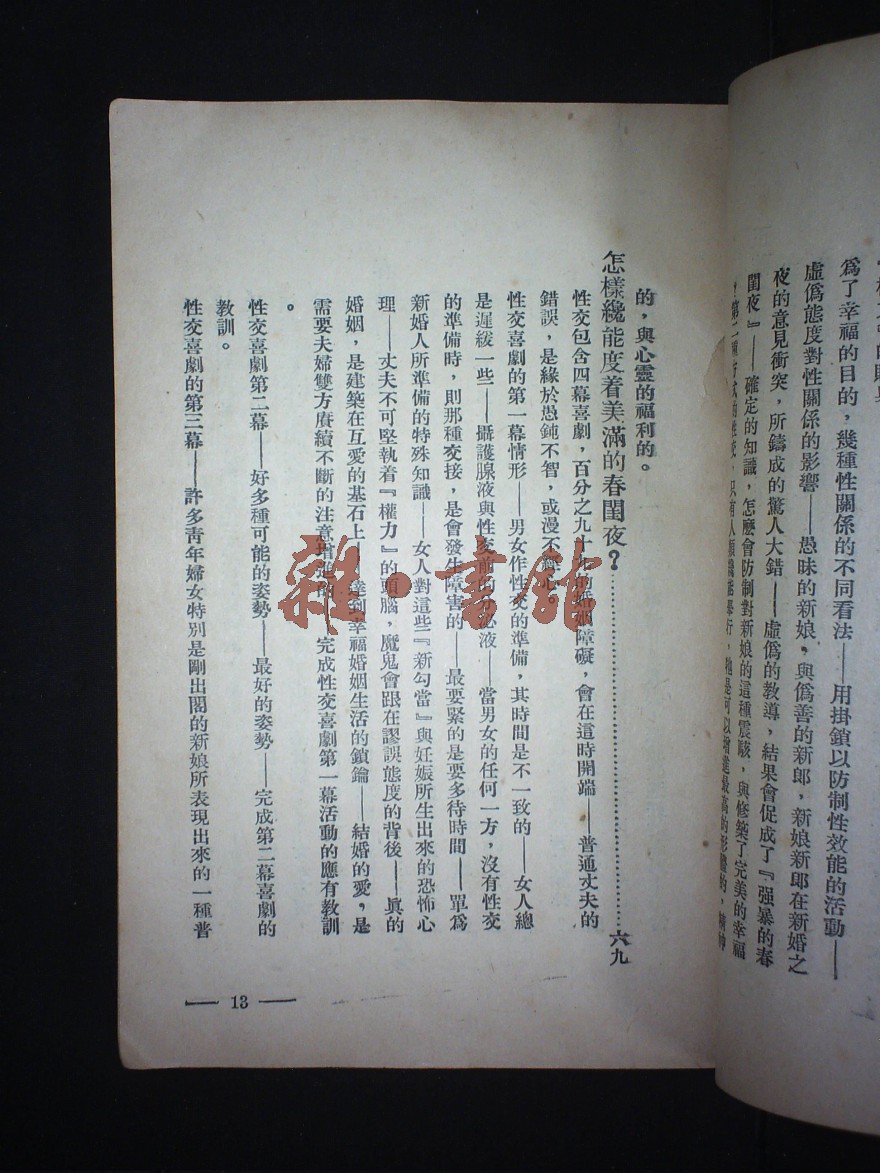 爲了幸福的目的，幾種性關係的不同看法——用掛鎖以防制性效能的活動——
虛僞態度對性關係的影響——愚昧的新娘，與僞善的新郎，新娘新郎在新婚之
夜的意見衝突，所鑄成的驚人大錯——虛僞的教導，結果會促成了『强暴的春
閨夜』——確定的知識，怎麽會防制對新娘的這種震駭，與修築了完美的幸福
的，與心靈的福利的。
怎樣纔能度着美滿的春閨夜？……六九
性交包含四幕喜劇，百分之九十的婚姻障礙，會在這時開端——普通丈夫的
錯誤，是緣於愚鈍不智，或漫不經心
性交喜劇的第一幕情形——男女作性交的準備，其時間是不一致的——女人總
是遲緩一些——攝護腺液與性交前的分泌液——當男女的任何一方，沒有性交
的準備時，則那種交接，是會發生障害的——最要緊的是要多待時間——單爲
新婚人所準備的特殊知識——女人對這些『新勾當』與妊娠所生出來的恐怖心
理——丈夫不可堅執着『權力』的頭腦，魔鬼會跟在謬誤態度的背後——眞的
婚姻，是建築在互愛的基石上——達到幸福婚姻生活的鎖鑰——結婚的愛，是
需要夫婦雙方賡續不斷的注意增進的——完成性交喜劇第一幕活動的應有教訓
。
性交喜劇第二幕——好多種可能的姿勢——最好的姿勢——完成第二幕喜劇的
教訓。
性交喜劇的第三幕——許多靑年婦女特別是剛出閣的新娘所表現出來的一種普
— 13 —
雜·書館